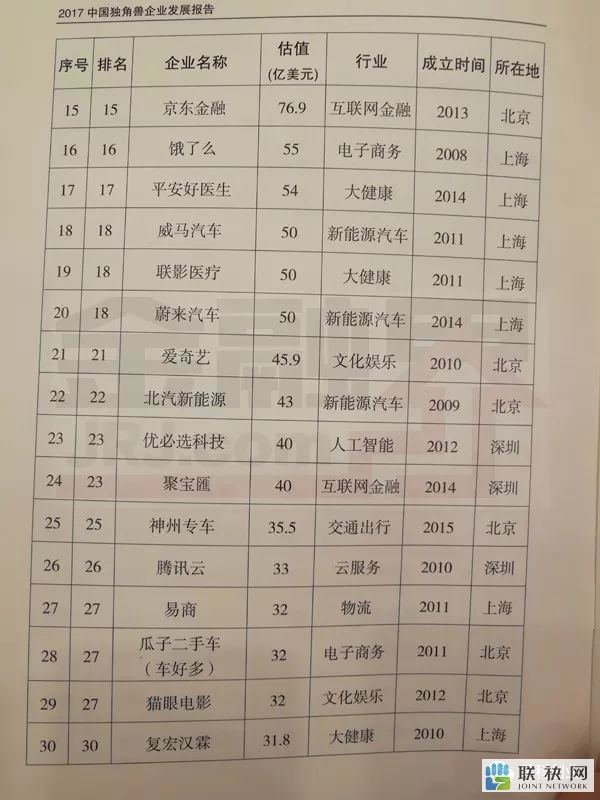 2017 中国独角兽企业发展报告
序号 排名 企业名称 估值(亿美元) 行业 成立时间 所在地
15 15 京东金融 76.9 互联网金融 2013 北京
16 16 饿了么 55 电子商务 2008 上海
17 17 平安好医生 54 大健康 2014 上海
18 18 威马汽车 50 新能源汽车 2011 上海
19 18 联影医疗 50 大健康 2011 上海
20 18 蔚来汽车 50 新能源汽车 2014 上海
21 21 爱奇艺 45.9 文化娱乐 2010 北京
22 22 北汽新能源 43 新能源汽车 2009 北京
23 23 优必选科技 40 人工智能 2012 深圳
24 23 聚宝匯 40 互联网金融 2014 深圳
25 25 神州专车 35.5 交通出行 2015 北京
26 26 腾讯云 33 云服务 2010 深圳
27 27 易商 32 物流 2011 上海
28 27 瓜子二手车(车好多) 32 电子商务 2011 北京
29 27 猫眼电影 32 文化娱乐 2012 北京
30 30 复宏汉霖 31.8 大健康 2010 上海
金融界
JRJ.com
联袂网
JOINT NETWORK